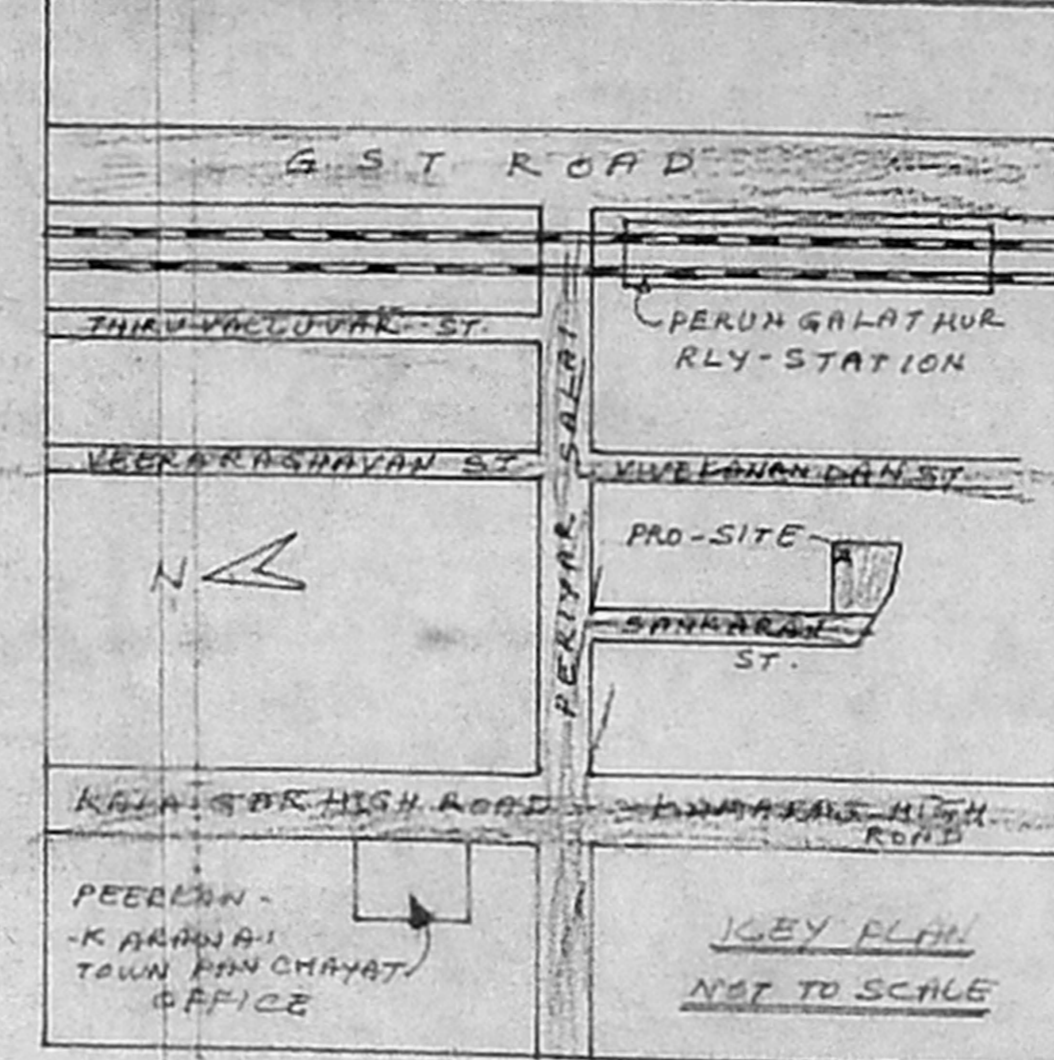 GST ROAD
THIRUVALLUVAR ST.
PERUNGALATHUR
RLY-STATION
PERIYAR SALAI
VEERARAGHAVAN ST
VIVEKANANDAN ST
PRO-SITE
N
SANKARAN
ST.
KALAIGAR HIGH ROAD
KAMARAJ HIGH
ROAD
PEERKAN-
-KARANAI
TOWN PANCHAYAT
OFFICE
KEY PLAN
NOT TO SCALE